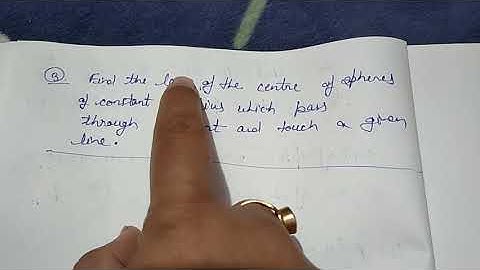 Q Find the of the centre of spheres
of constant which pass
through and touch a given
line.